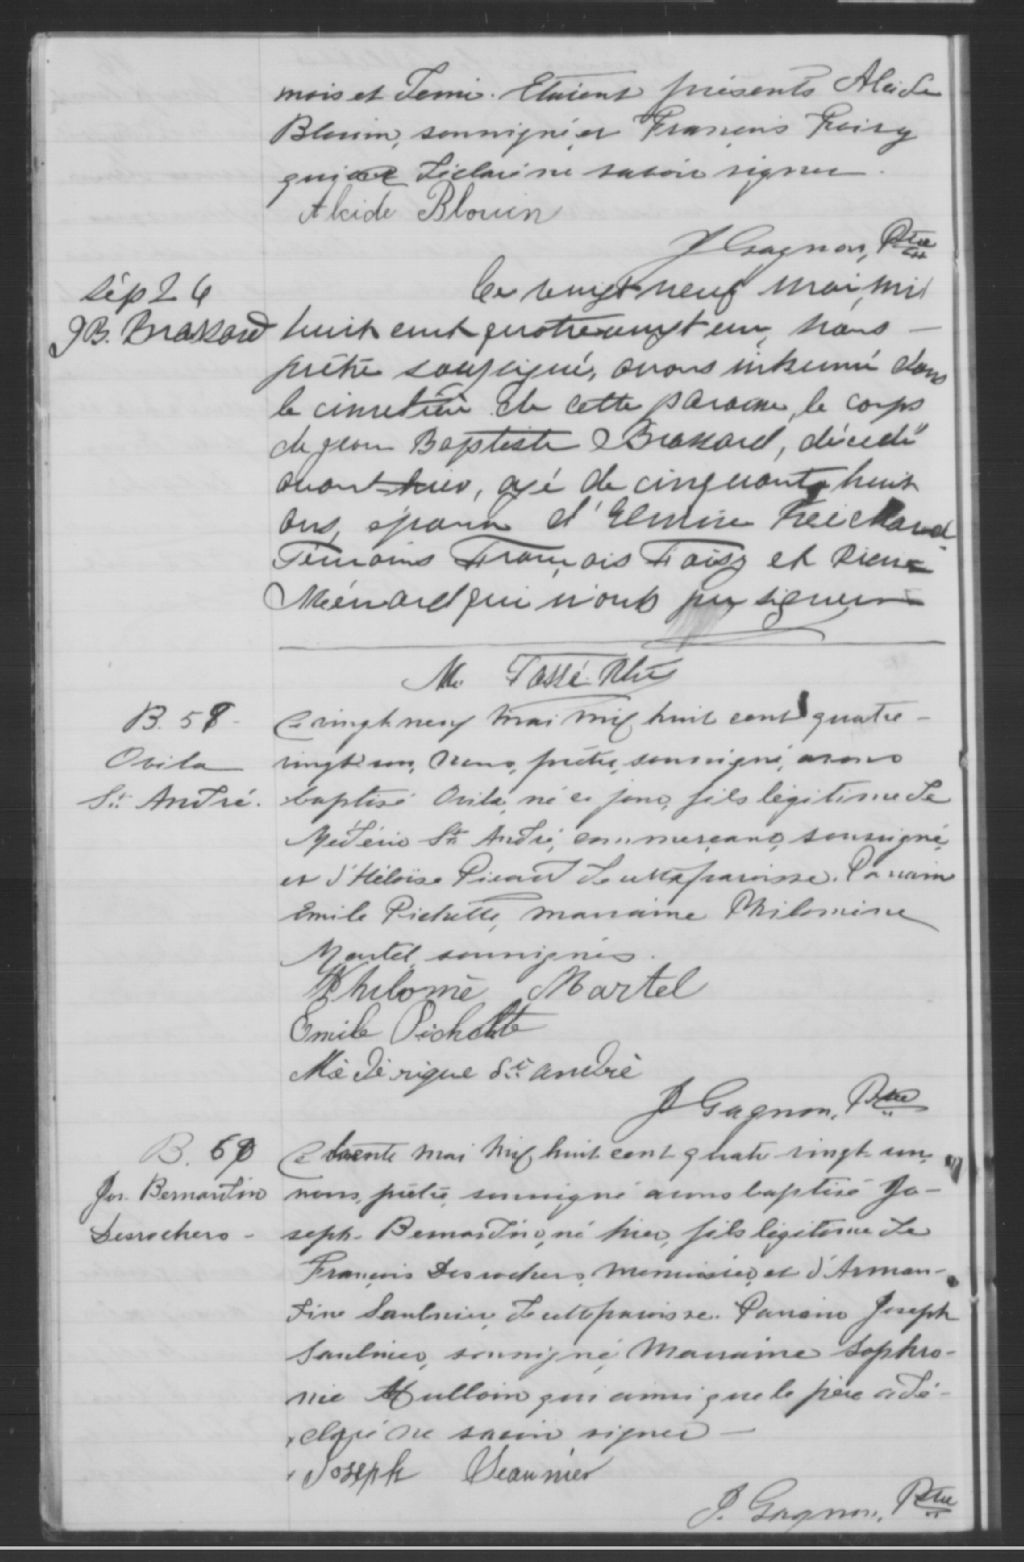 mois et demi. Etaient présents Alcide
Blouin, soussigné, et François Foisy
qui a déclaré ne savoir signer.
Alcide Blouin
J Gagnon, Ptre
Sép 26
J B. Brassard
Ce vingt neuf mai, mil
huit cent quatrevingt un, nous
prêtre soussigné, avons inhumé dans
le cimetière de cette paroisse, le corps
de Jean Baptiste Brassard, décédé
avant-hier, agé de cinquante huit
ans, époux d'Elmire
Témoins François Foisy et Pierre
Ménard qui n'ont pu signer
M. Tassé Ptre
B. 58
Ovila
St André.
Ce vingt neuf mai mil huit cent quatre-
vingt un, nous, prêtre, soussigné, avons
baptisé Ovila, né ce jour, fils légitime de
Médéric St André, commerçant, soussigné,
et d'Héloïse Picard de cette paroisse. Parrain
Emile Pichette, marraine Philomène
Martel, soussignés.
Philomè Martel
Emile Pichette
Médérique St andré
J Gagnon, Ptre
B. 59
Jos. Bernardin
Desrochers -
Ce trente mai mil huit cent quatre vingt-un,
nous, prêtre soussigné avons baptisé Jo-
seph-Bernardin, né hier, fils légitime de
François Desrochers, menuisier, et d'Arman-
dine Saulnier, de cette paroisse. Parrain Joseph
Saulnier, soussigné, Marraine Sophro-
nie qui ainsi que le père a dé-
claré ne savoir signer -
Joseph Seaunier
J. Gagnon, Ptre